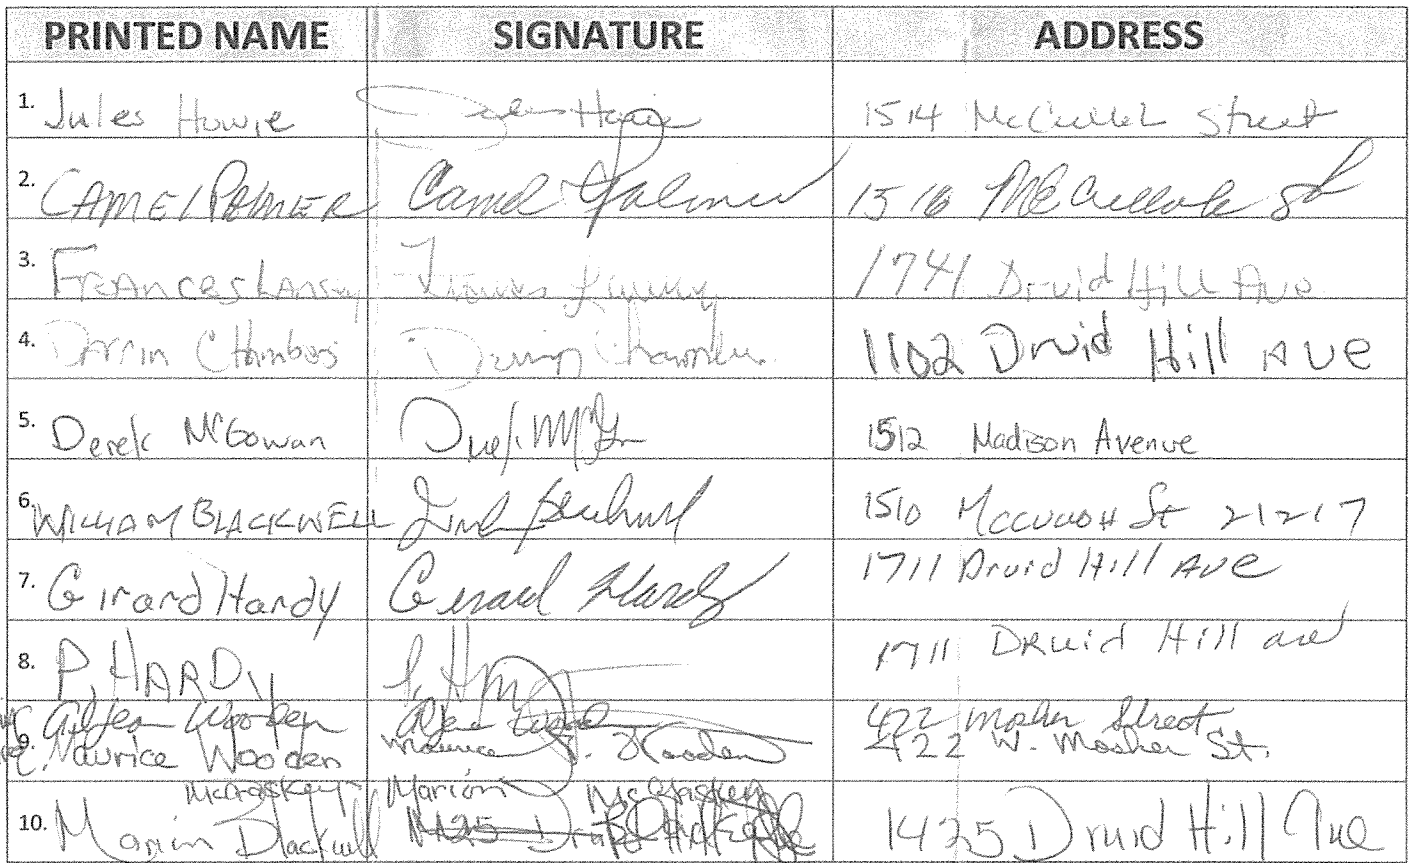 PRINTED NAME SIGNATURE ADDRESS
1. Jules Howie Jules Howie 1514 McCulloh Street
2. CAMEL PALMER Camel Palmer 1516 McCulloh St
3. FRANCES LANSEY Frances Lansey 1741 Druid Hill Ave
4. Darrin Chambers 1102 Druid Hill AVE
5. Derek McGowan 1512 Madison Avenue
6. WILLIAM BLACKWELL 1510 McCulloh St 21217
7. Girard Hardy Gerard Hardy 1711 Druid Hill AVE
8. P. HARDY 1711 DRuid Hill ave
Wooden 422 Mosher Street
9. Maurice Wooden Maurice Wooden 422 W. Mosher St.
McCraskey Marion McCraskey
10. Marion Blackwell 1425 Druid Hill Ave